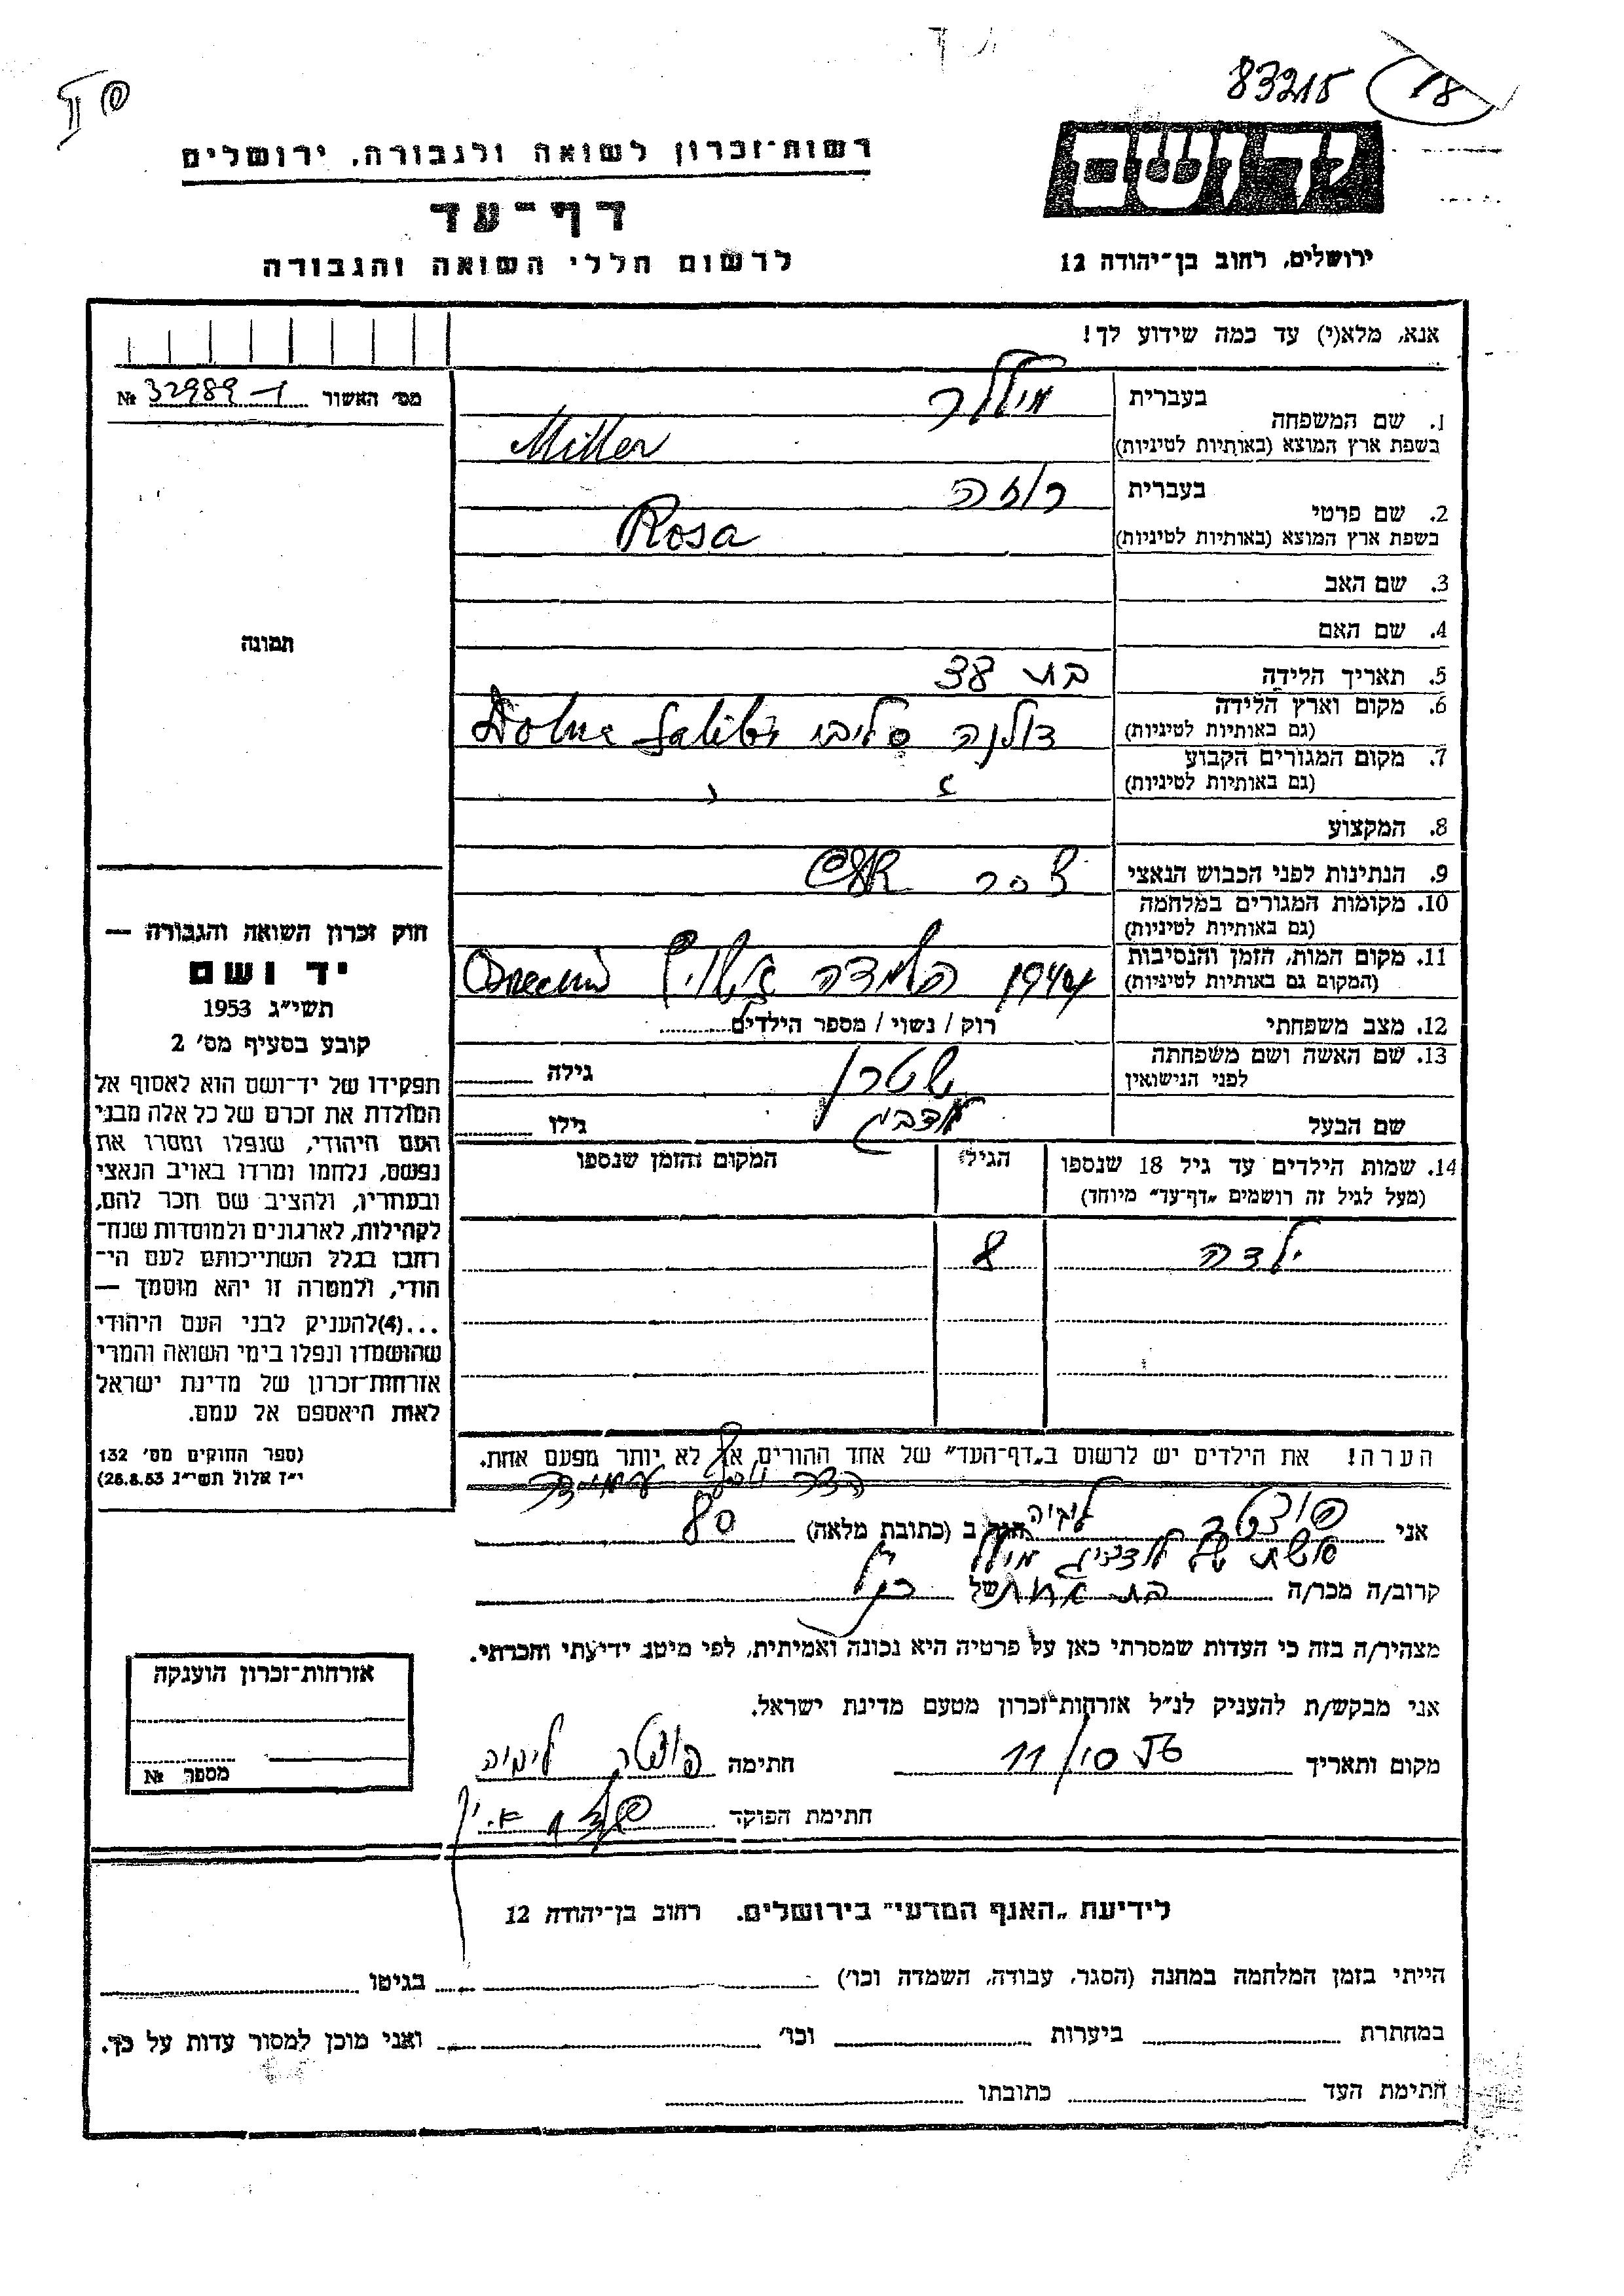 83215 18
רשות־זכרון לשואה ולגבורה, ירושלים
יד ושם
דף־עד
לרשום חללי השואה והגבורה
ירושלים, רחוב בן־יהודה 12
אנא, מלא(י) עד כמה שידוע לך!
מס׳ האשור 32989-1 №
1. שם המשפחה בעברית מילר
בשפת ארץ המוצא (באותיות לטיניות) Miller
2. שם פרטי בעברית רוזה
בשפת ארץ המוצא (באותיות לטיניות) Rosa
3. שם האב
4. שם האם
תמונה
5. תאריך הלידה בת 38
6. מקום וארץ הלידה דולנה סליבי Dolne Salibi
(גם באותיות לטיניות)
7. מקום המגורים הקבוע
(גם באותיות לטיניות)
8. המקצוע
9. הנתינות לפני הכבוש הנאצי
10. מקומות המגורים במלחמה
(גם באותיות לטיניות)
11. מקום המות, הזמן והנסיבות 1944
(המקום גם באותיות לטיניות)
12. מצב משפחתי רוק / נשוי / מספר הילדים
13. שם האשה ושם משפחתה שטרן גילה
לפני הנישואין
שם הבעל גילו
14. שמות הילדים עד גיל 18 שנספו הגיל המקום והזמן שנספו
(מעל לגיל זה רושמים „דף־עד״ מיוחד)
ילדה 8
הערה! את הילדים יש לרשום ב„דף־העד״ של אחד ההורים, אך לא יותר מפעם אחת.
חוק זכרון השואה והגבורה —
יד ושם
תשי״ג 1953
קובע בסעיף מס׳ 2
תפקידו של יד־ושם הוא לאסוף אל
המולדת את זכרם של כל אלה מבני
העם היהודי, שנפלו ומסרו את
נפשם, נלחמו ומרדו באויב הנאצי
ובעוזריו, ולהציב שם וזכר להם,
לקהילות, לארגונים ולמוסדות שנח־
רבו בגלל השתייכותם לעם הי־
הודי, ולמטרה זו יהא מוסמך —
...(4)להעניק לבני העם היהודי
שהושמדו ונפלו בימי השואה והמרי
אזרחות־זכרון של מדינת ישראל
לאות היאספם אל עמם.
(ספר החוקים מס׳ 132
י״ז אלול תשי״ג 26.8.53)
אני לידיה הגר ב (כתובת מלאה) 80
קרוב/ה מכר/ה של
מצהיר/ה בזה כי העדות שמסרתי כאן על פרטיה היא נכונה ואמיתית, לפי מיטב ידיעתי והכרתי.
אני מבקש/ת להעניק לנ״ל אזרחות־זכרון מטעם מדינת ישראל.
מקום ותאריך חתימה
חתימת הפוקד
אזרחות־זכרון הוענקה
מספר №
לידיעת „האגף המדעי״ בירושלים. רחוב בן־יהודה 12
הייתי בזמן המלחמה במחנה (הסגר, עבודה, השמדה וכו׳) בגיטו
במחתרת ביערות וכו׳ ואני מוכן למסור עדות על כך.
חתימת העד כתובתו